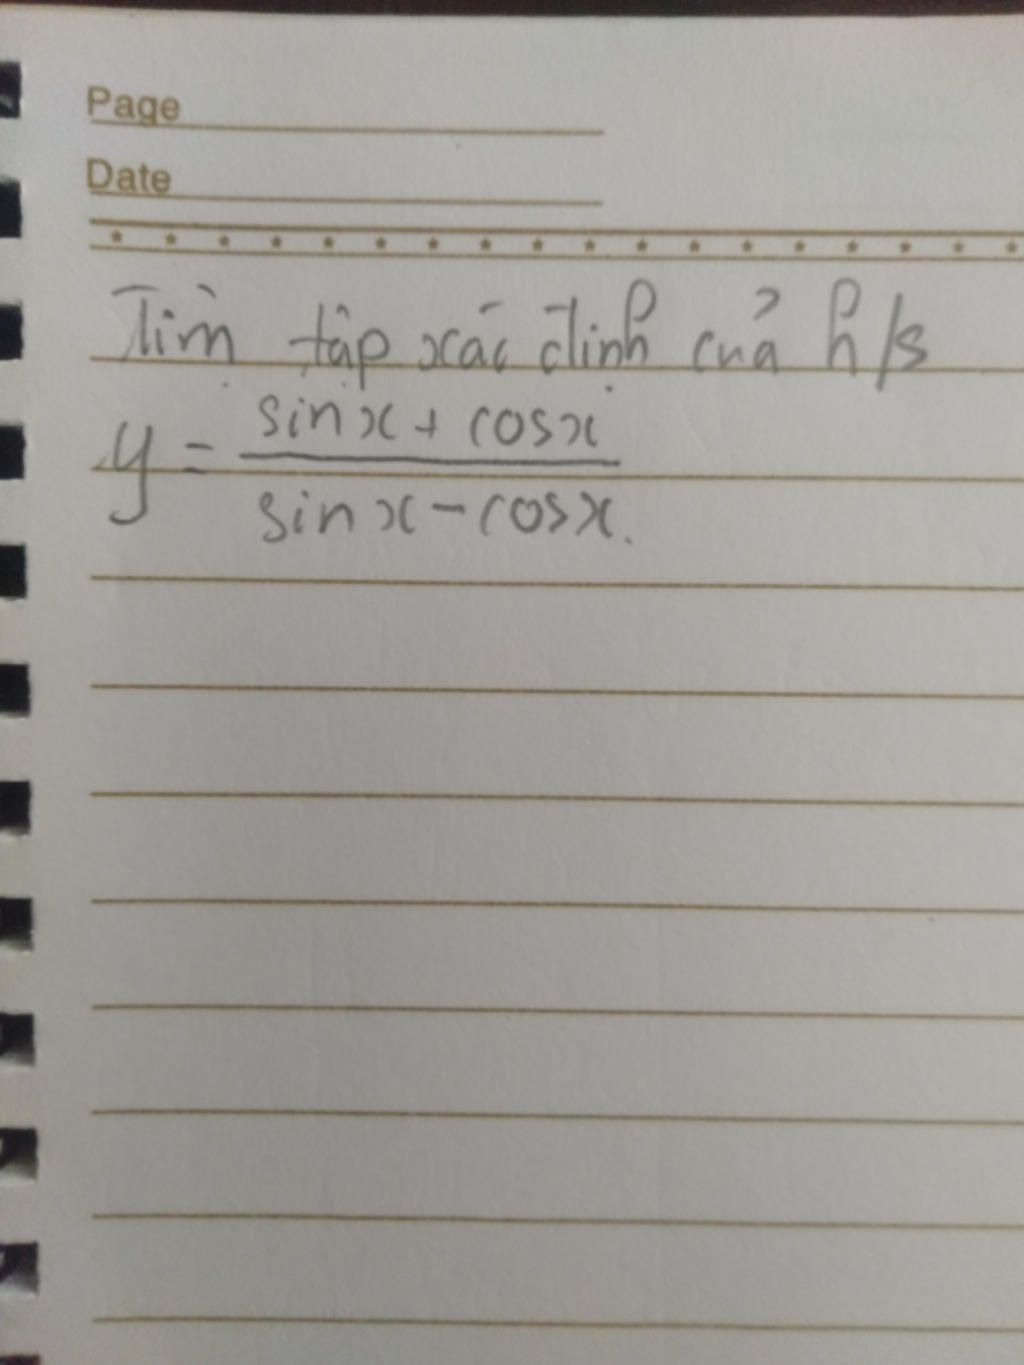 Page
Date
Tìm tập xác định của h/s
y = \frac{sinx + cosx}{sinx - cosx}.